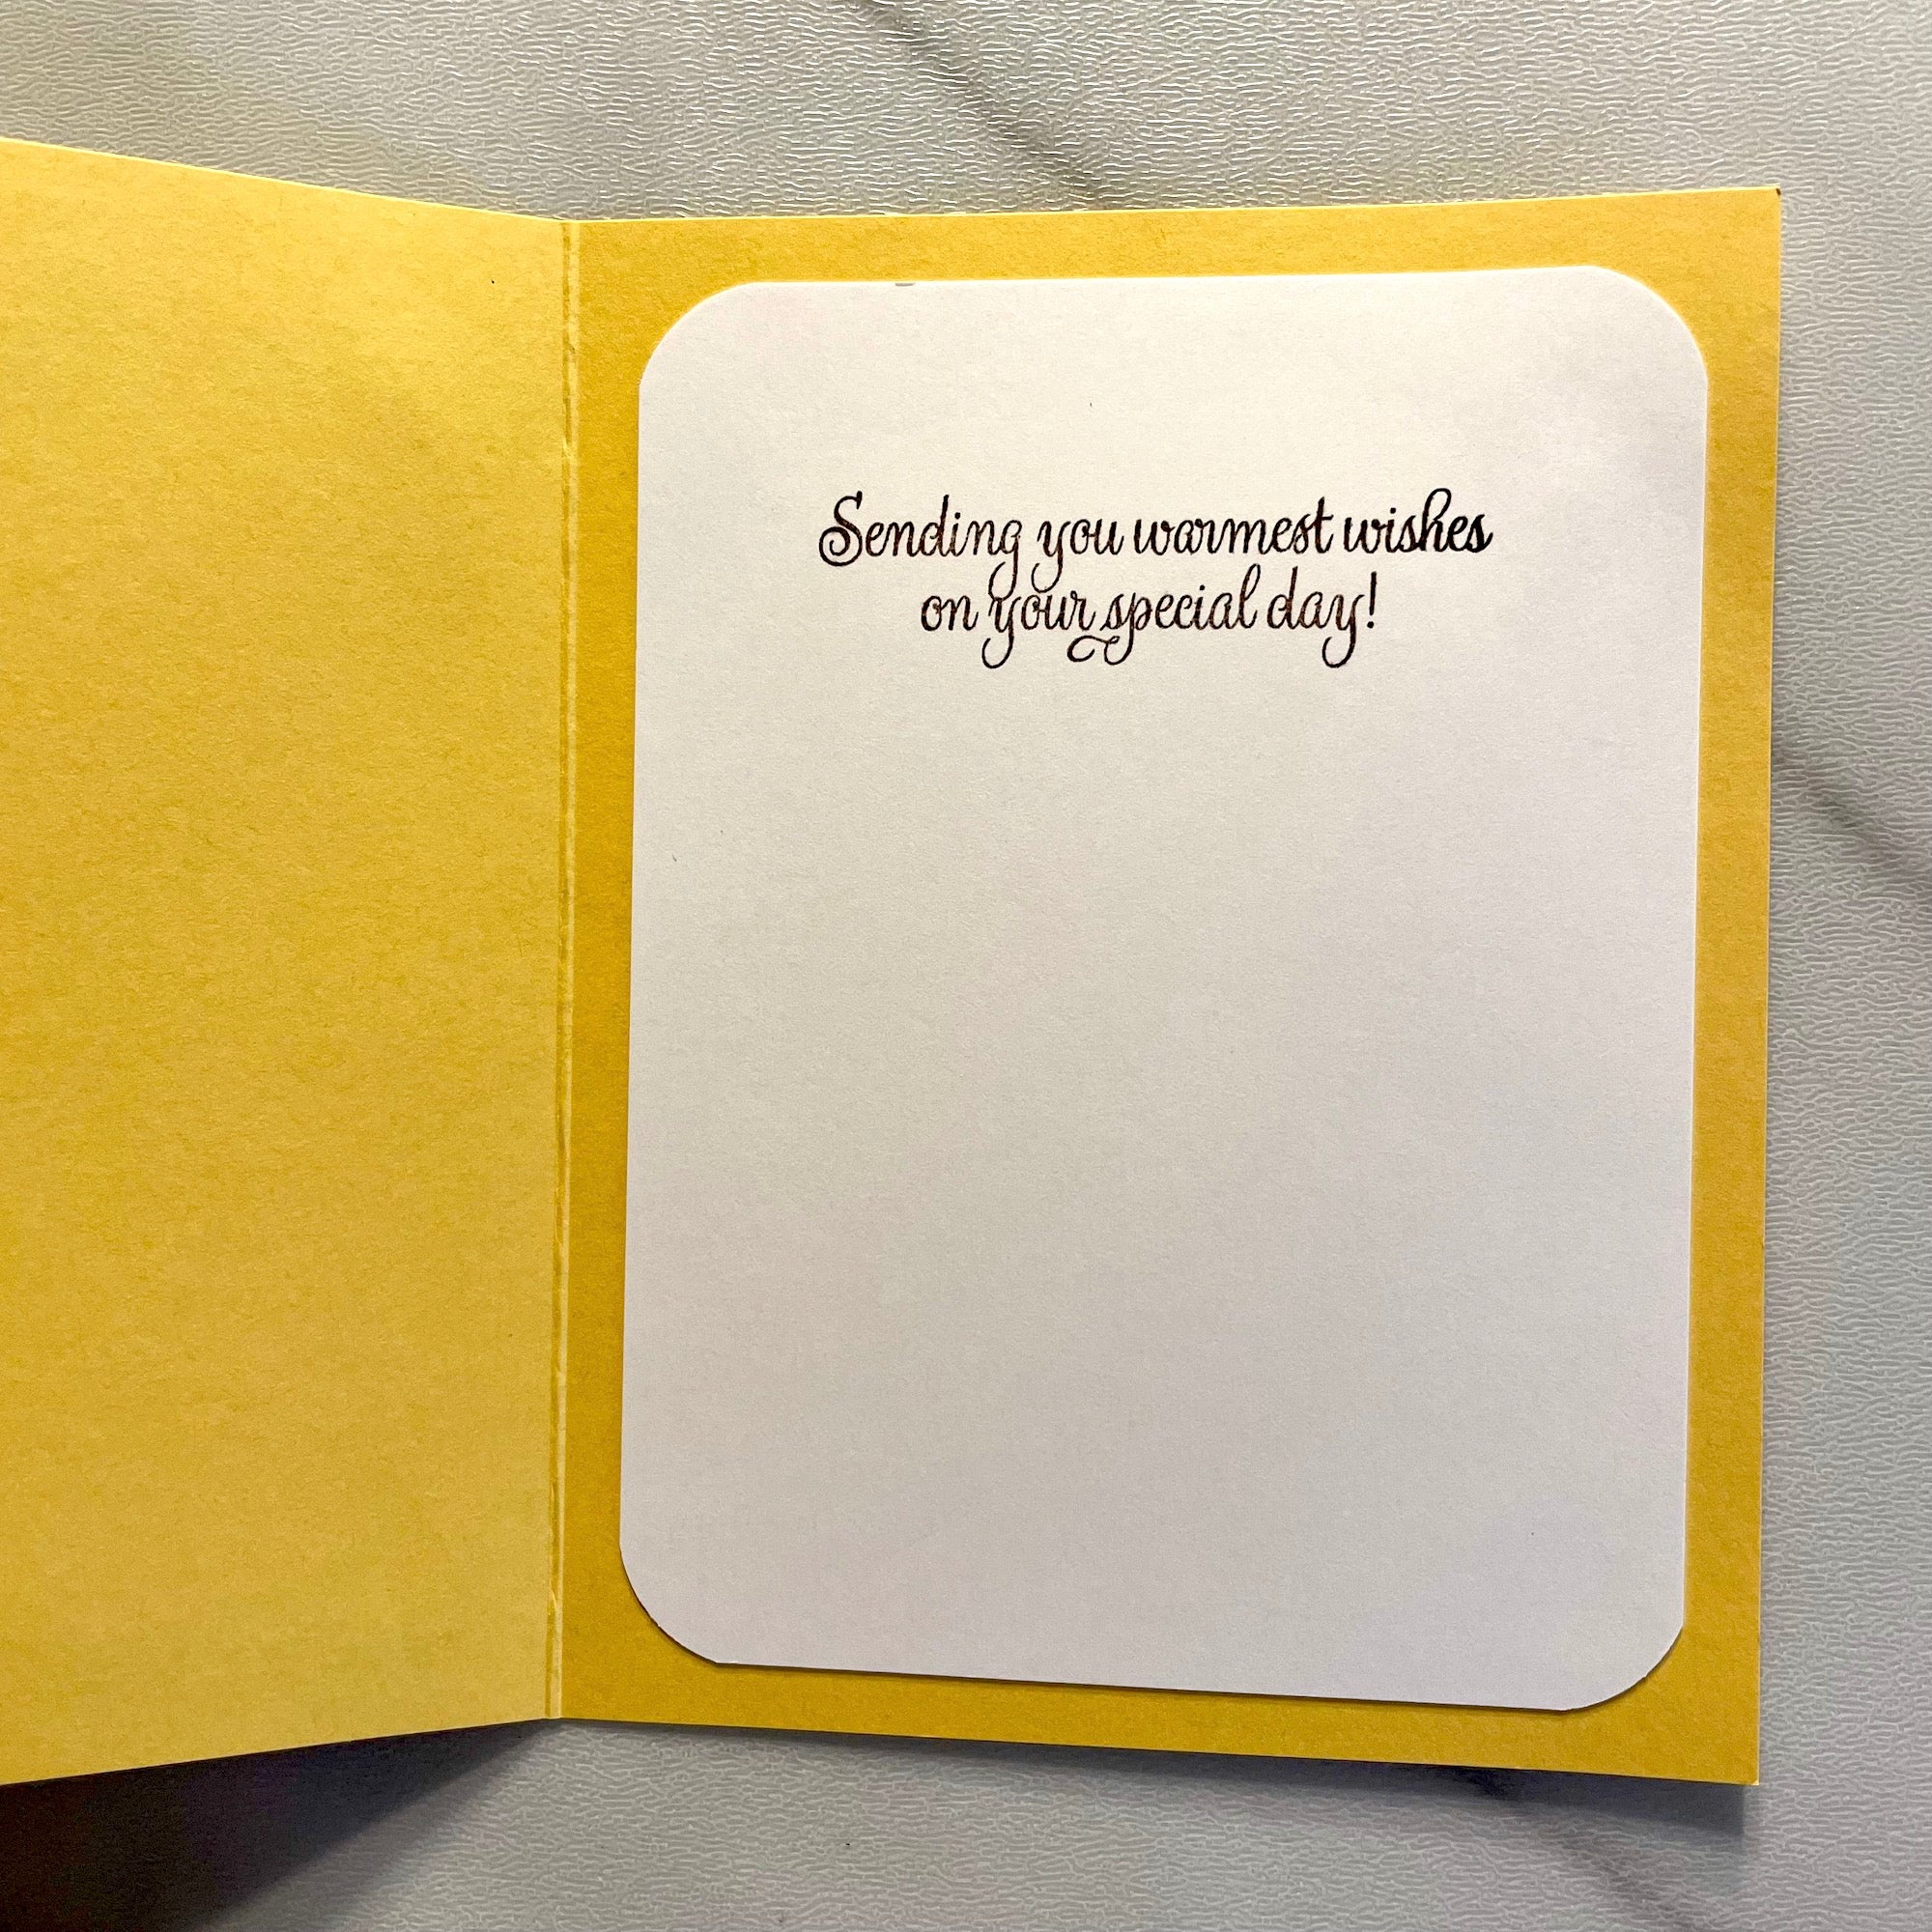 Sending you warmest wishes
on your special day!